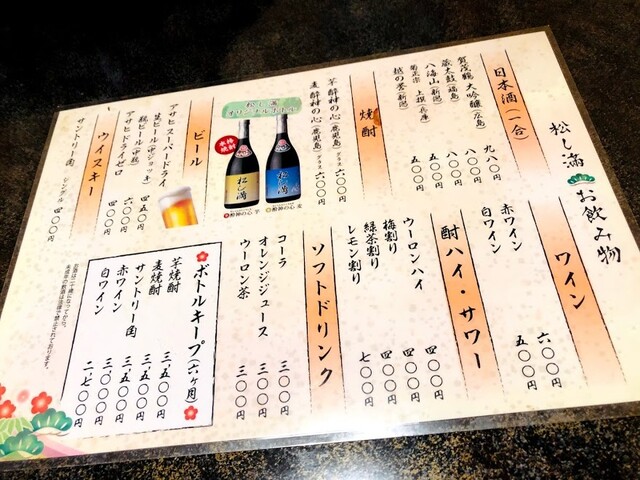 松し満 お飲み物
日本酒(一合)
賀茂鶴 大吟醸(広島) 九八〇円
蔵太鼓(福島) 八〇〇円
八海山(新潟) 八〇〇円
菊正宗 上撰(兵庫) 五〇〇円
越の誉(新潟) 五〇〇円
焼酎
芋 酔村の心(鹿児島) グラス 六〇〇円
麦 酔村の心(鹿児島) グラス 六〇〇円
松し満
オリジナルボトル
本格焼酎
松し満
松し満
ビール
アサヒスーパードライ
生ビール(中ジョッキ) 四五〇円
瓶ビール(中瓶) 六〇〇円
アサヒドライゼロ 四〇〇円
ウイスキー
サントリー角 シングル 四〇〇円
ワイン
赤ワイン 六〇〇円
白ワイン 五〇〇円
酎ハイ・サワー
ウーロンハイ 四〇〇円
梅割り 四〇〇円
緑茶割り 四〇〇円
レモン割り 七〇〇円
ソフトドリンク
コーラ 三〇〇円
オレンジジュース 三〇〇円
ウーロン茶 三〇〇円
ボトルキープ(六ヶ月)
芋焼酎 三、五〇〇円
麦焼酎 三、五〇〇円
サントリー角 三、五〇〇円
赤ワイン 二、七〇〇円
白ワイン 二、七〇〇円
お酒は二十歳になってから。
未成年の飲酒は法律で禁止されております。